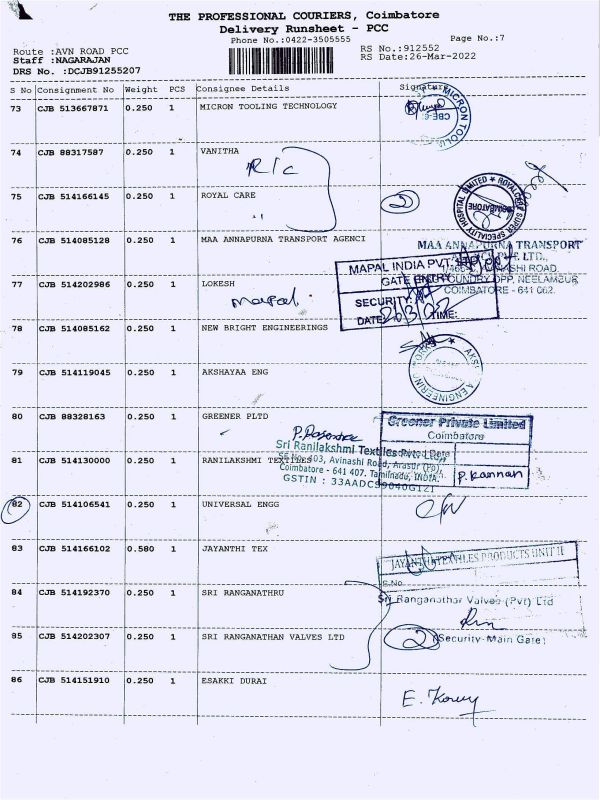 THE PROFESSIONAL COURIERS, Coimbatore
Delivery Runsheet - PCC
Phone No.:0422-3505555
Page No.:7
Route :AVN ROAD PCC
RS No.:912552
Staff :NAGARAJAN
RS Date:26-Mar-2022
DRS No. :DCJB91255207
S No Consignment No Weight PCS Consignee Details Signature
73 CJB 513667871 0.250 1 MICRON TOOLING TECHNOLOGY
MICRON TOOL
CBE-6
74 CJB 88317587 0.250 1 VANITHA
R/c
75 CJB 514166145 0.250 1 ROYAL CARE
2
ROYALCARE SUPER SPECIALITY HOSPITAL LIMITED
COIMBATORE
76 CJB 514085128 0.250 1 MAA ANNAPURNA TRANSPORT AGENCI
MAA ANNAPURNA TRANSPORT
PVT. LTD.,
AVINASHI ROAD,
FOUNDRY OPP, NEELAMBUR
COIMBATORE - 641 062.
MAPAL INDIA PVT. LTD
GATE ENTRY
SECURITY:
DATE: TIME:
77 CJB 514202986 0.250 1 LOKESH
Mapal
78 CJB 514085162 0.250 1 NEW BRIGHT ENGINEERINGS
79 CJB 514119045 0.250 1 AKSHAYAA ENG
ENGINEERING WORKS
80 CJB 88328163 0.250 1 GREENER PLTD
Greener Private Limited
Coimbatore
Date
P. Kannan
81 CJB 514130000 0.250 1 RANILAKSHMI TEXTILES
Sri Ranilakshmi Textiles Pvt Ltd.,
SF No. 403, Avinashi Road, Arasur (Po),
Coimbatore - 641 407. Tamilnadu, INDIA.
GSTIN : 33AADCS9040G1Z1
82 CJB 514106541 0.250 1 UNIVERSAL ENGG
83 CJB 514166102 0.580 1 JAYANTHI TEX
JAYANTHI TEXTILES PRODUCTS UNIT II
S.No
84 CJB 514192370 0.250 1 SRI RANGANATHRU
Sri Ranganathar Valves (Pvt) Ltd
85 CJB 514202307 0.250 1 SRI RANGANATHAN VALVES LTD
2
(Security-Main Gate)
86 CJB 514151910 0.250 1 ESAKKI DURAI